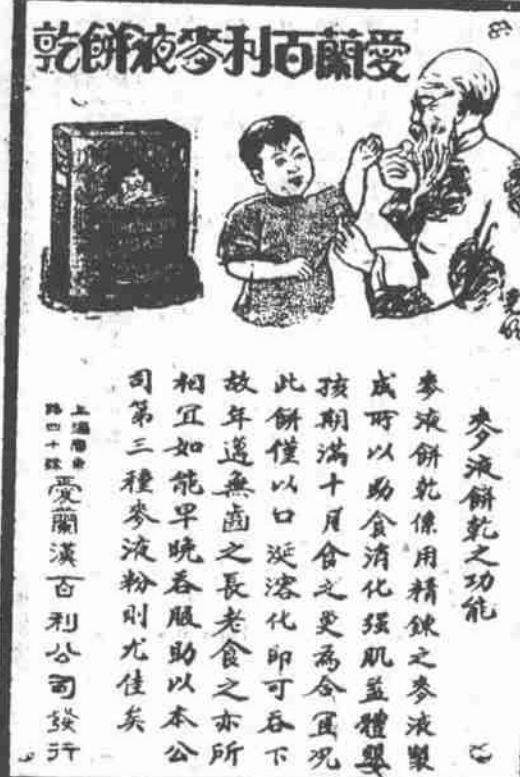 愛蘭百利麥液餅乾
麥液餅乾之功能
麥液餅乾係用精鍊之麥液製
成所以助食消化强肌益體嬰
孩期滿十月食之更爲合宜况
此餅僅以口涎溶化即可吞下
故年邁無齒之長老食之亦所
相宜如能早晚吞服助以本公
司第三種麥液粉則尤佳矣
上海廣東
路四十號
愛蘭漢百利公司發行